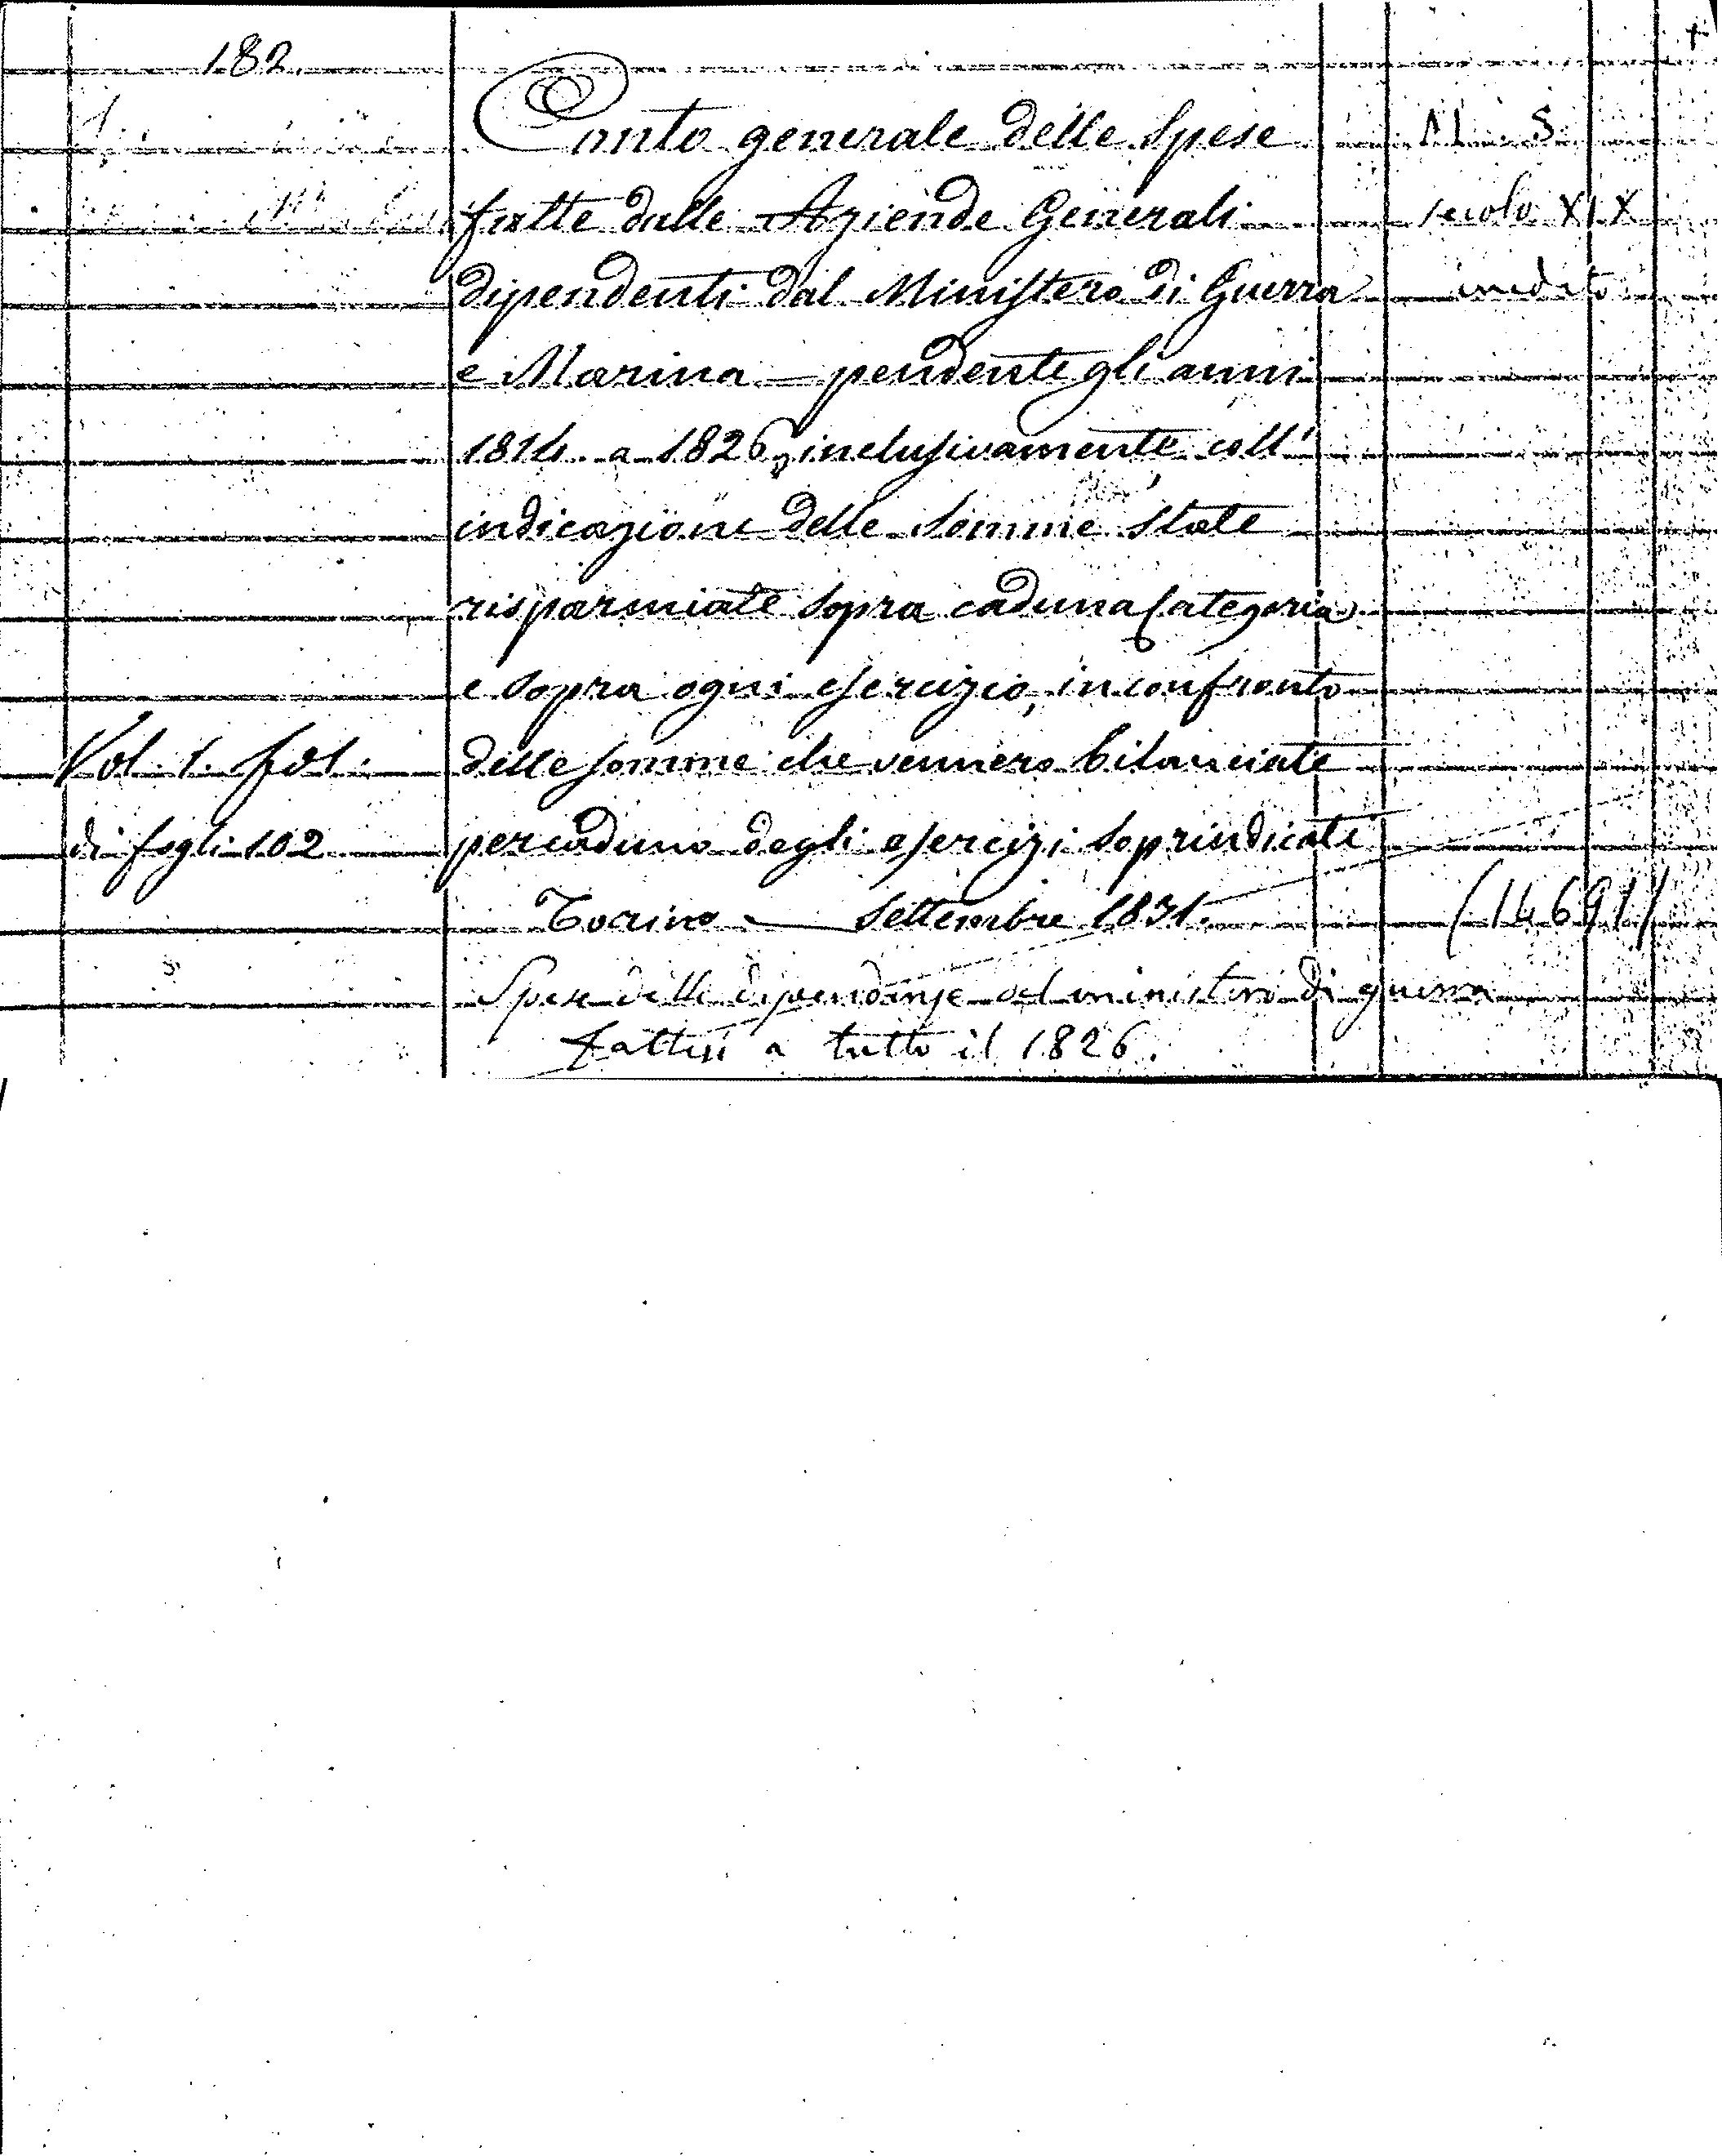 182.
Conto generale delle Spese
fatte dalle Aziende Generali
dipendenti dal Ministero di Guerra
e Marina – pendente gli anni
1814. a 1826, inclusivamente coll'
indicazione delle Somme State
risparmiate sopra caduna Categoria
e sopra ogni esercizio, in confronto
delle somme che vennero bilanciate
per caduno degli esercizi soprindicati
Torino – Settembre 1831.
Spese delle dipendenze del ministero di guerra
fattesi a tutto il 1826.
Vol. 1. fol.
di fogli 102
M. S.
secolo XIX
inedito
(14691)